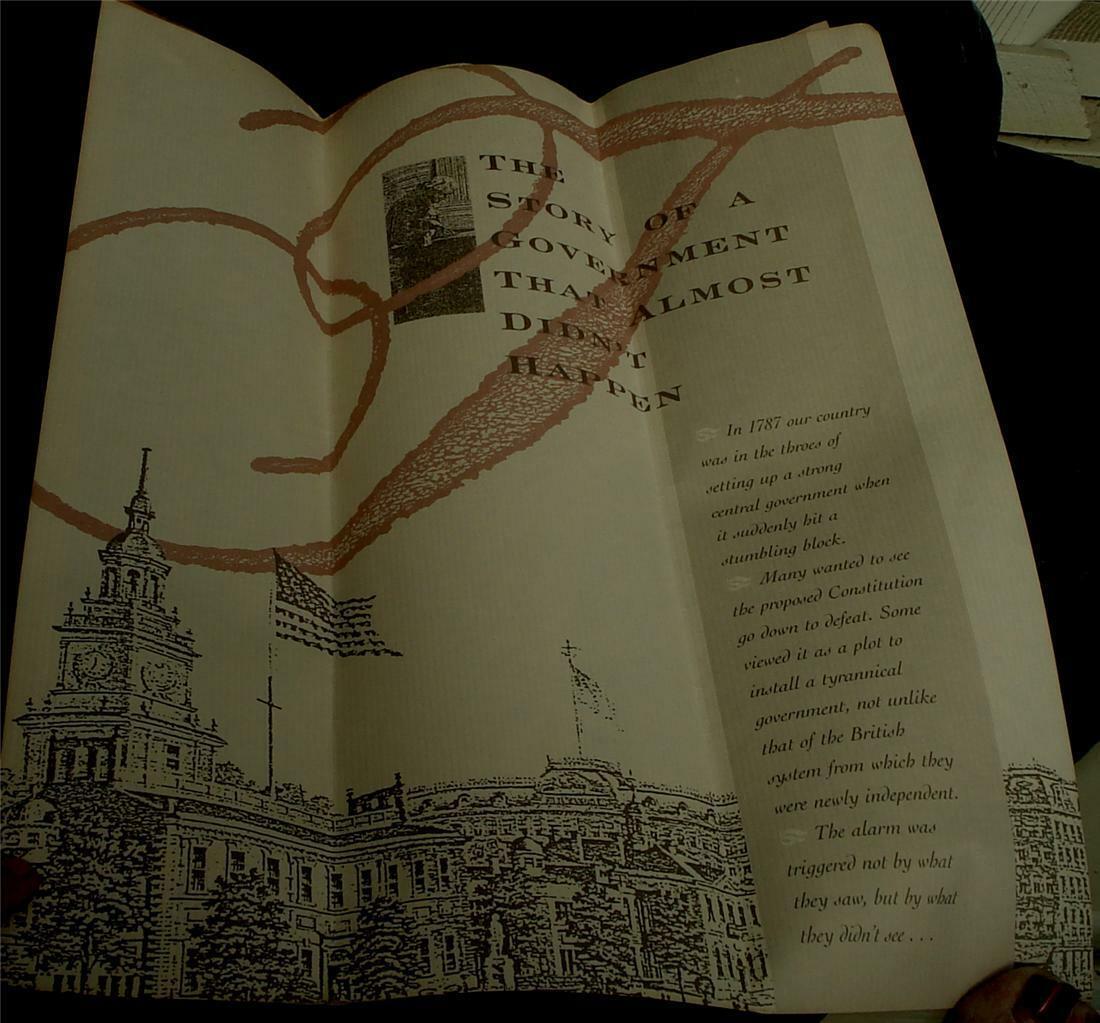 THE
STORY OF A
GOVERNMENT
THAT ALMOST
DIDN'T
HAPPEN
In 1787 our country
was in the throes of
setting up a strong
central government when
it suddenly hit a
stumbling block.
Many wanted to see
the proposed Constitution
go down to defeat. Some
viewed it as a plot to
install a tyrannical
government, not unlike
that of the British
system from which they
were newly independent.
The alarm was
triggered not by what
they saw, but by what
they didn't see . . .